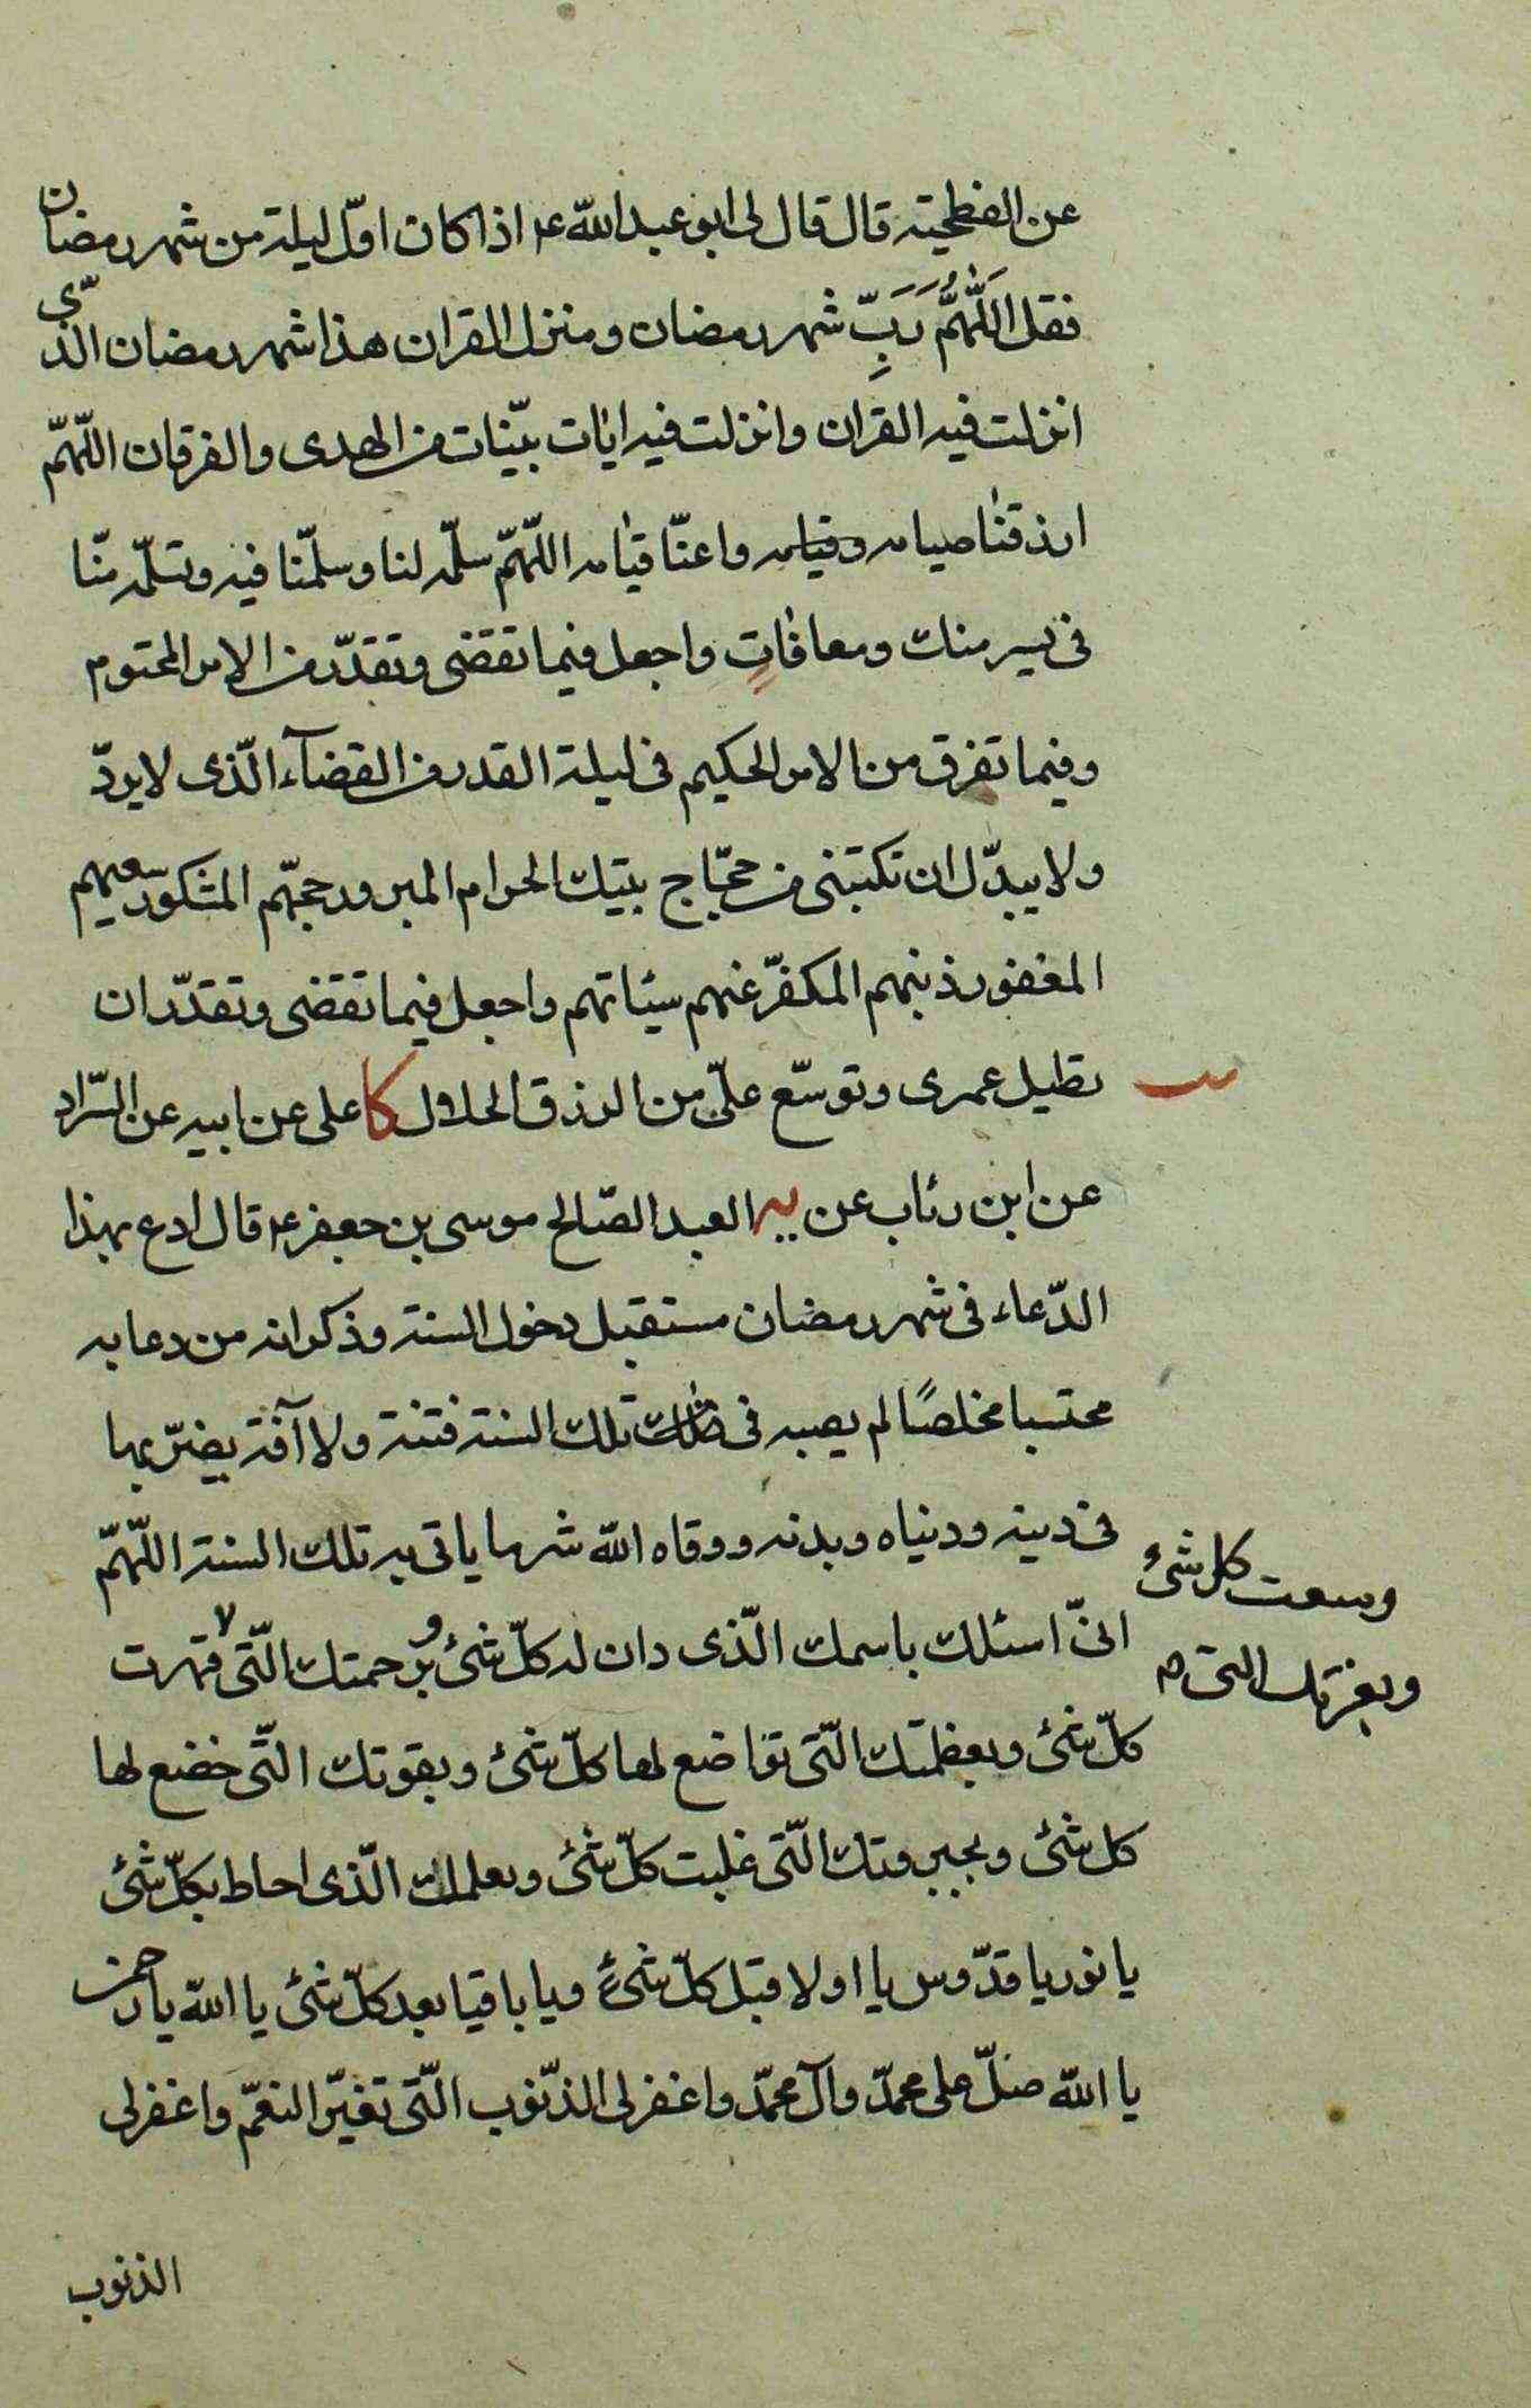 عن الفطحية قال قال لى ابو عبد الله ع اذا كان اوّل ليلة من شهر رمضان
فقل اَللّٰهُمَّ رَبِّ شهر رمضان و منزل القران هذا شهر رمضان الذّى
انزلت فيه القران وانزلت فيه ايٰات بيّنات من الهدى والفرقان اللّهمّ
ارزقنٰا صيامه وقيامه واعنّا قيٰامه اللّهمّ سلّمه لنا وسلّمنا فيه وتسلّمه منّا
فى يسر منك ومعافٰاتٍ واجعل فيما تقضى وتقدّر من الامر المحتوم
وفيما تفرق من الامر الحكيم فى ليلة القدر من القضآء الّذى لا يردّ
ولا يبدّل ان تكتبنى من حجّاج بيتك الحرام المبرور حجّهم المشكور سعيهم
المغفور ذنبهم المكفّر عنهم سيئاتهم واجعل فيما تقضى وتقدّر ان
تطيل عمرى وتوسّع علىّ من الرزق الحلال كا على عن ابيه عن السّراد
عن ابن رئاب عن يه العبد الصّالح موسى بن جعفر ع قال ادع بهذا
الدّعاء فى شهر رمضان مستقبل دخول السنة وذكر انه من دعا به
محتسبا مخلصًا لم يصبه فى تلك السنة فتنة ولا آفة يضرّ بها
فى دينه ودنياه وبدنه ووقاه الله شر ما ياتى به تلك السنة اللّهمّ
انىّ اسئلك باسمك الّذى دان له كلّ شئ وبرحمتك الّتى قهرت
وسعت كل شئ
وبعزتك التى م
كلّ شئ وبعظمتك الّتى تواضع لها كلّ شئ وبقوتك الّتى خضع لها
كل شئ وبجبروتك الّتى غلبت كلّ شئ وبعلمك الّذى احاط بكلّ شئ
يا نور يا قدّوس يا اولا قبل كلّ شئ ويا باقيا بعد كلّ شئ يا الله يا رحمن
يا الله صلّ على محمّد وآل محمّد واغفر لى الذّنوب الّتى تغيّر النعمّ واغفر لى
الذنوب